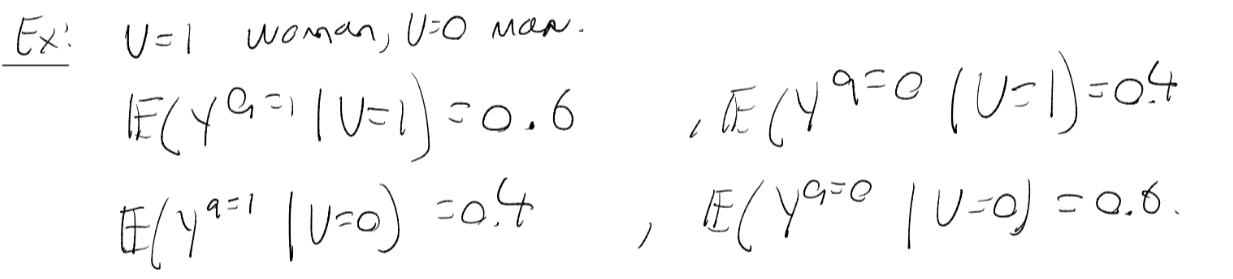 Ex: U=1 woman, U=0 man.
𝔼(Y^{a=1} | U=1) = 0.6 , 𝔼(Y^{a=0} | U=1) = 0.4
𝔼(Y^{a=1} | U=0) = 0.4 , 𝔼(Y^{a=0} | U=0) = 0.6.